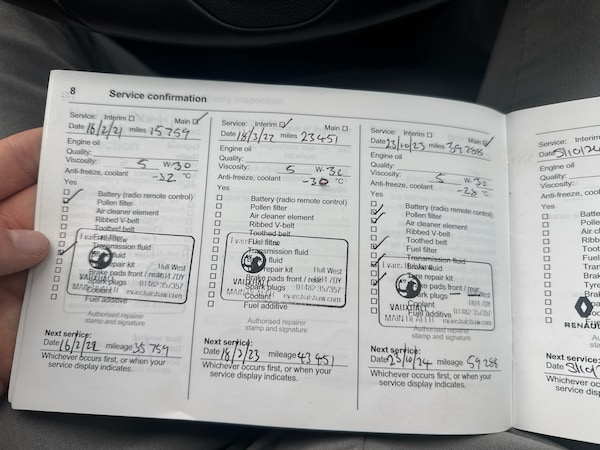 8 Service confirmation
Service: Interim Main
Date 16/2/21 miles 15759
Engine oil
Quality:
Viscosity: 5 W-30
Anti-freeze, coolant -32 °C
Yes
Battery (radio remote control)
Pollen filter
Air cleaner element
Ribbed V-belt
Toothed belt
Fuel filter
Transmission fluid
Brake pads front / rear
Spark plugs
Coolant
Fuel additive
Hull West
VAUXHALL
Authorised repairer
stamp and signature
Next service:
Date 16/2/22 mileage 35 759
Whichever occurs first, or when your
service display indicates.
Service: Interim Main
Date 18/3/22 miles 23451
Engine oil
Quality:
Viscosity: 5 W-
Anti-freeze, coolant °C
Yes
Battery (radio remote control)
Pollen filter
Air cleaner element
Ribbed V-belt
Toothed belt
Fuel filter
Transmission fluid
Brake pads front / rear
Spark plugs
Coolant
Fuel additive
Hull West
VAUXHALL
Authorised repairer
stamp and signature
Next service:
Date 18/3/23 mileage 43451
Whichever occurs first, or when your
service display indicates.
Service: Interim Main
Date 23/10/23 miles 39288
Engine oil
Quality:
Viscosity: 5 W-30
Anti-freeze, coolant °C
Yes
Battery (radio remote control)
Pollen filter
Air cleaner element
Ribbed V-belt
Toothed belt
Fuel filter
Transmission fluid
Brake fluid
Tyre repair kit
Brake pads front / rear
Spark plugs
Coolant
Fuel additive
Hull West
VAUXHALL
Authorised repairer
stamp and signature
Next service:
Date 23/10/24 mileage 59288
Whichever occurs first, or when your
service display indicates.
Service: Interim
Date
Engine oil
Quality:
Viscosity:
Anti-freeze,
Yes
RENAU
Next service:
Date
Whichever
service